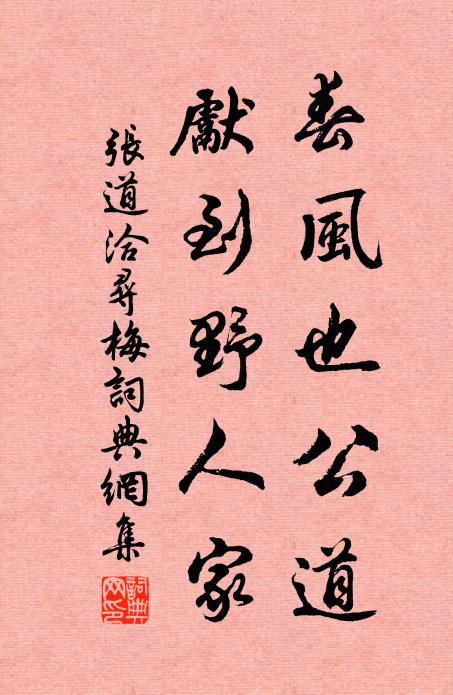 春風也公道
獻到野人家
張道洽尋梅詞典網集
詞典網印